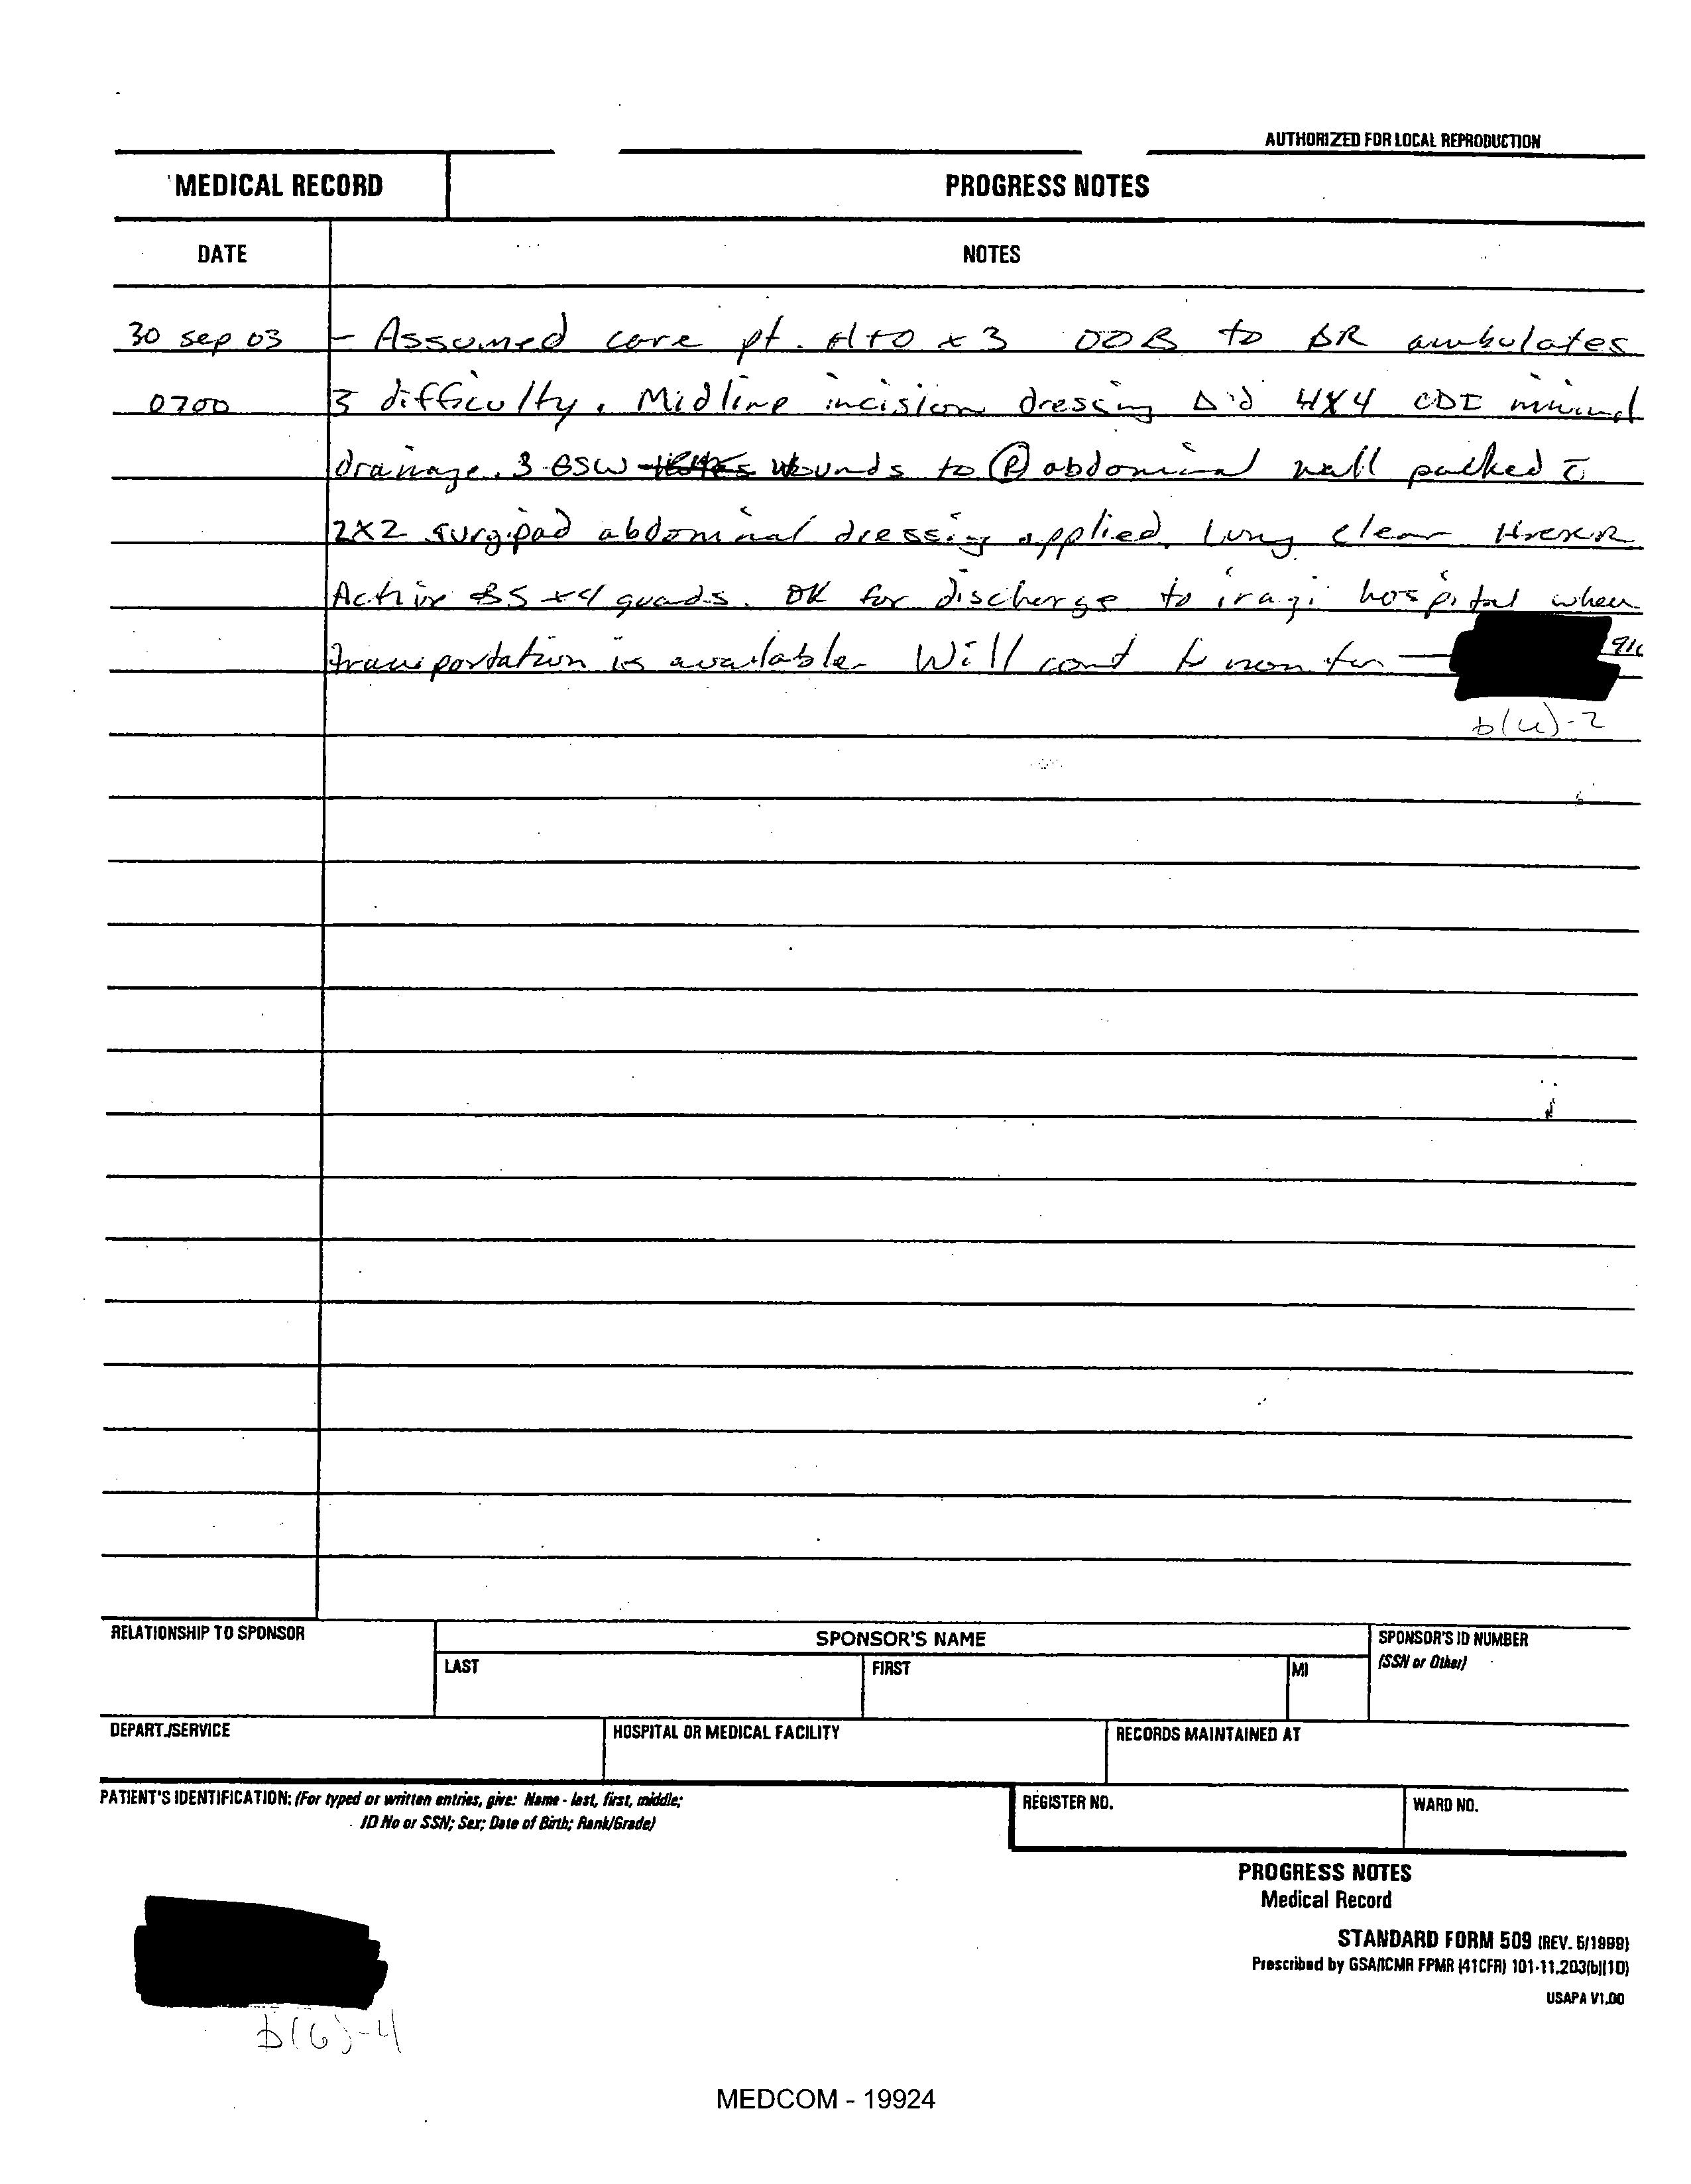 AUTHORIZED FOR LOCAL REPRODUCTION
MEDICAL RECORD PROGRESS NOTES
DATE NOTES
30 Sep 03 - Assumed care pt. A+O x 3 OOB to BR ambulates
0700 s̄ difficulty. Midline incision dressing Δ'd 4X4 CDI minimal
drainage. 3 GSW wounds to Ⓡ abdominal wall packed c̄
2X2 surgipad abdominal dressing applied. Lung clear
Active BS x4 quads. OK for discharge to iraqi hospital when
transportation is available. Will cont to monitor — 91
b(6)-2
RELATIONSHIP TO SPONSOR SPONSOR'S NAME SPONSOR'S ID NUMBER
LAST FIRST MI (SSN or Other)
DEPART./SERVICE HOSPITAL OR MEDICAL FACILITY RECORDS MAINTAINED AT
PATIENT'S IDENTIFICATION: (For typed or written entries, give: Name - last, first, middle; REGISTER NO. WARD NO.
ID No or SSN; Sex; Date of Birth; Rank/Grade)
PROGRESS NOTES
Medical Record
STANDARD FORM 509 (REV. 5/1999)
Prescribed by GSA/ICMR FPMR (41CFR) 101-11.203(b)(10)
USAPA V1.00
b(6)-4
MEDCOM - 19924